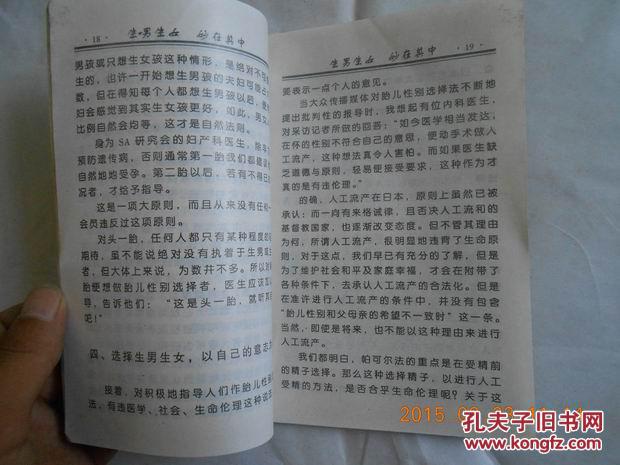 ·18·
生男生女 妙在其中
男孩或只想生女孩这种情形，是绝对不可
生的，也许一开始想生男孩的夫妇可能占
数，但在得知每个人都想生男孩以后，
妇会感觉到其实生女孩更好，如此，男女
比例自然会均等，这才是自然法则。
身为 SA 研究会的妇产科医生，除非
预防遗传病，否则通常第一胎我们都
自然地地受孕。第二胎以后，若有不得已
况者，才给予指导。
这是一项大原则，而且从来没有任何
会员违反过这项原则。
对头一胎，任何人都只有某种程度的
期待，虽不能说绝对没有执着于生男或
但大体上来说，为数并不多。所以对
胎便想做胎儿性别选择者，医生应该
导，告诉他们：“这是头一胎，就听其
吧！”
四、选择生男生女，以自己的意志为
接着，对积极地指导人们作胎儿性别
法，有违医学、社会、生命伦理这种说
生男生女 妙在其中
·19·
要表示一点个人的意见。
当大众传播媒体对胎儿性别选择法不断地
提出批判性的报导时，我想起有位内科医生，
对采访记者所做的回答：“如今医学相当发达，
在怀的性别不符合自己的意愿，便动手术做人
工流产，这种想法真令人害怕。而如果医生缺
乏道德与原则，轻易便接受要求，这种作为才
真的是有违伦理。”
的确，人工流产在日本，原则上虽然已被
承认；而一向有来恪诫律，且否决人工流和的
基督教国家，也逐渐改变态度。但不管其理由
为何，所谓人工流产，很明显地违背了生命原
则，对于这点，我们早已有充分的了解，但是
为了维护社会和平及家庭幸福，才会在附带了
各种条件下，去承认人工流产的合法化。但是
在准许进行人工流产的条件中，并没有包含
“胎儿性别和父母亲的希望不一致时”这一条。
当然，即使是将来，也不能以这种理由来进行
人工流产。
我们都明白，帕可尔法的重点是在受精前
的精子选择。那么这种选择精子，以进行人工
受精的方法，是否合乎生命伦理呢？关于这
孔夫子旧书网
www.kongfz.com